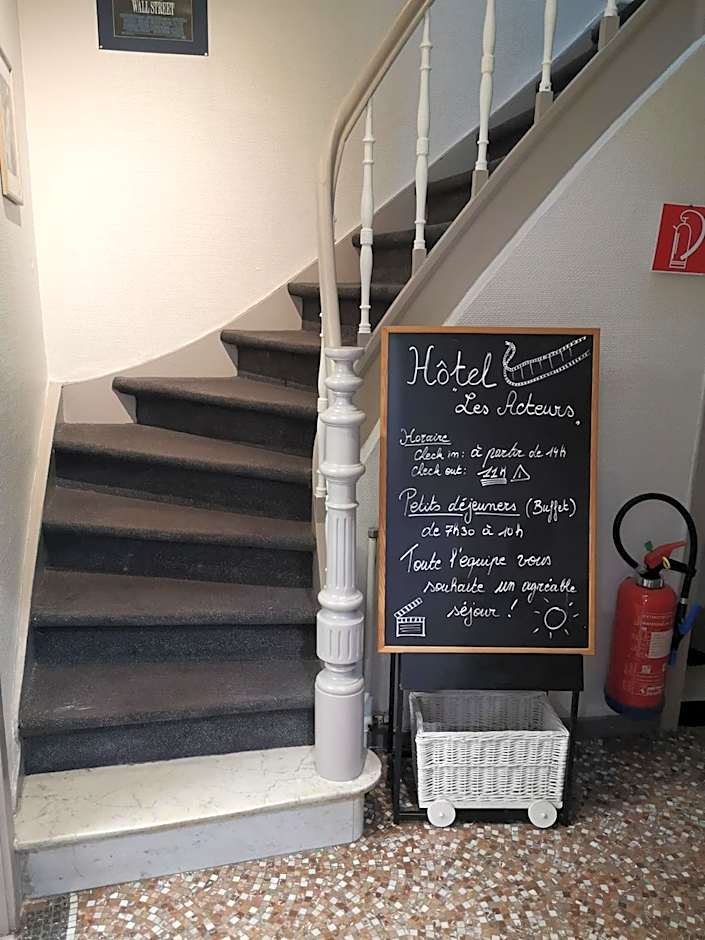 WALL STREET
Hôtel
"Les Acteurs"
Horaire
Check in : à partir de 14h
Check out : 11H
Petits déjeuners (Buffet)
de 7h30 à 10h
Toute l'équipe vous
souhaite un agréable
séjour !